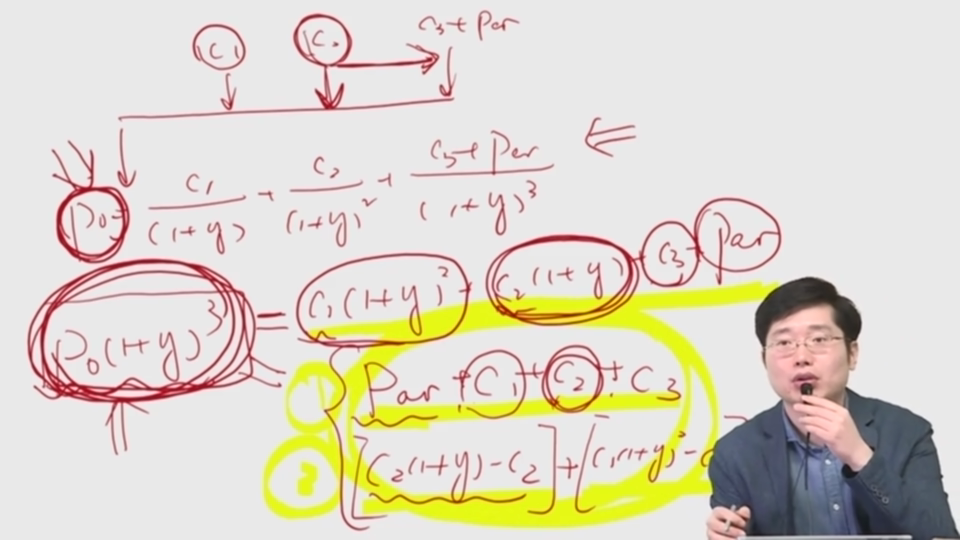 C₁ C₂ C₃+Par
P₀= C₁/(1+y) + C₂/(1+y)² + C₃+Par/(1+y)³
P₀(1+y)³ = C₁(1+y)² + C₂(1+y) + C₃ + Par
① Par + C₁ + C₂ + C₃
② [C₂(1+y)-C₂]+[C₁(1+y)²-C